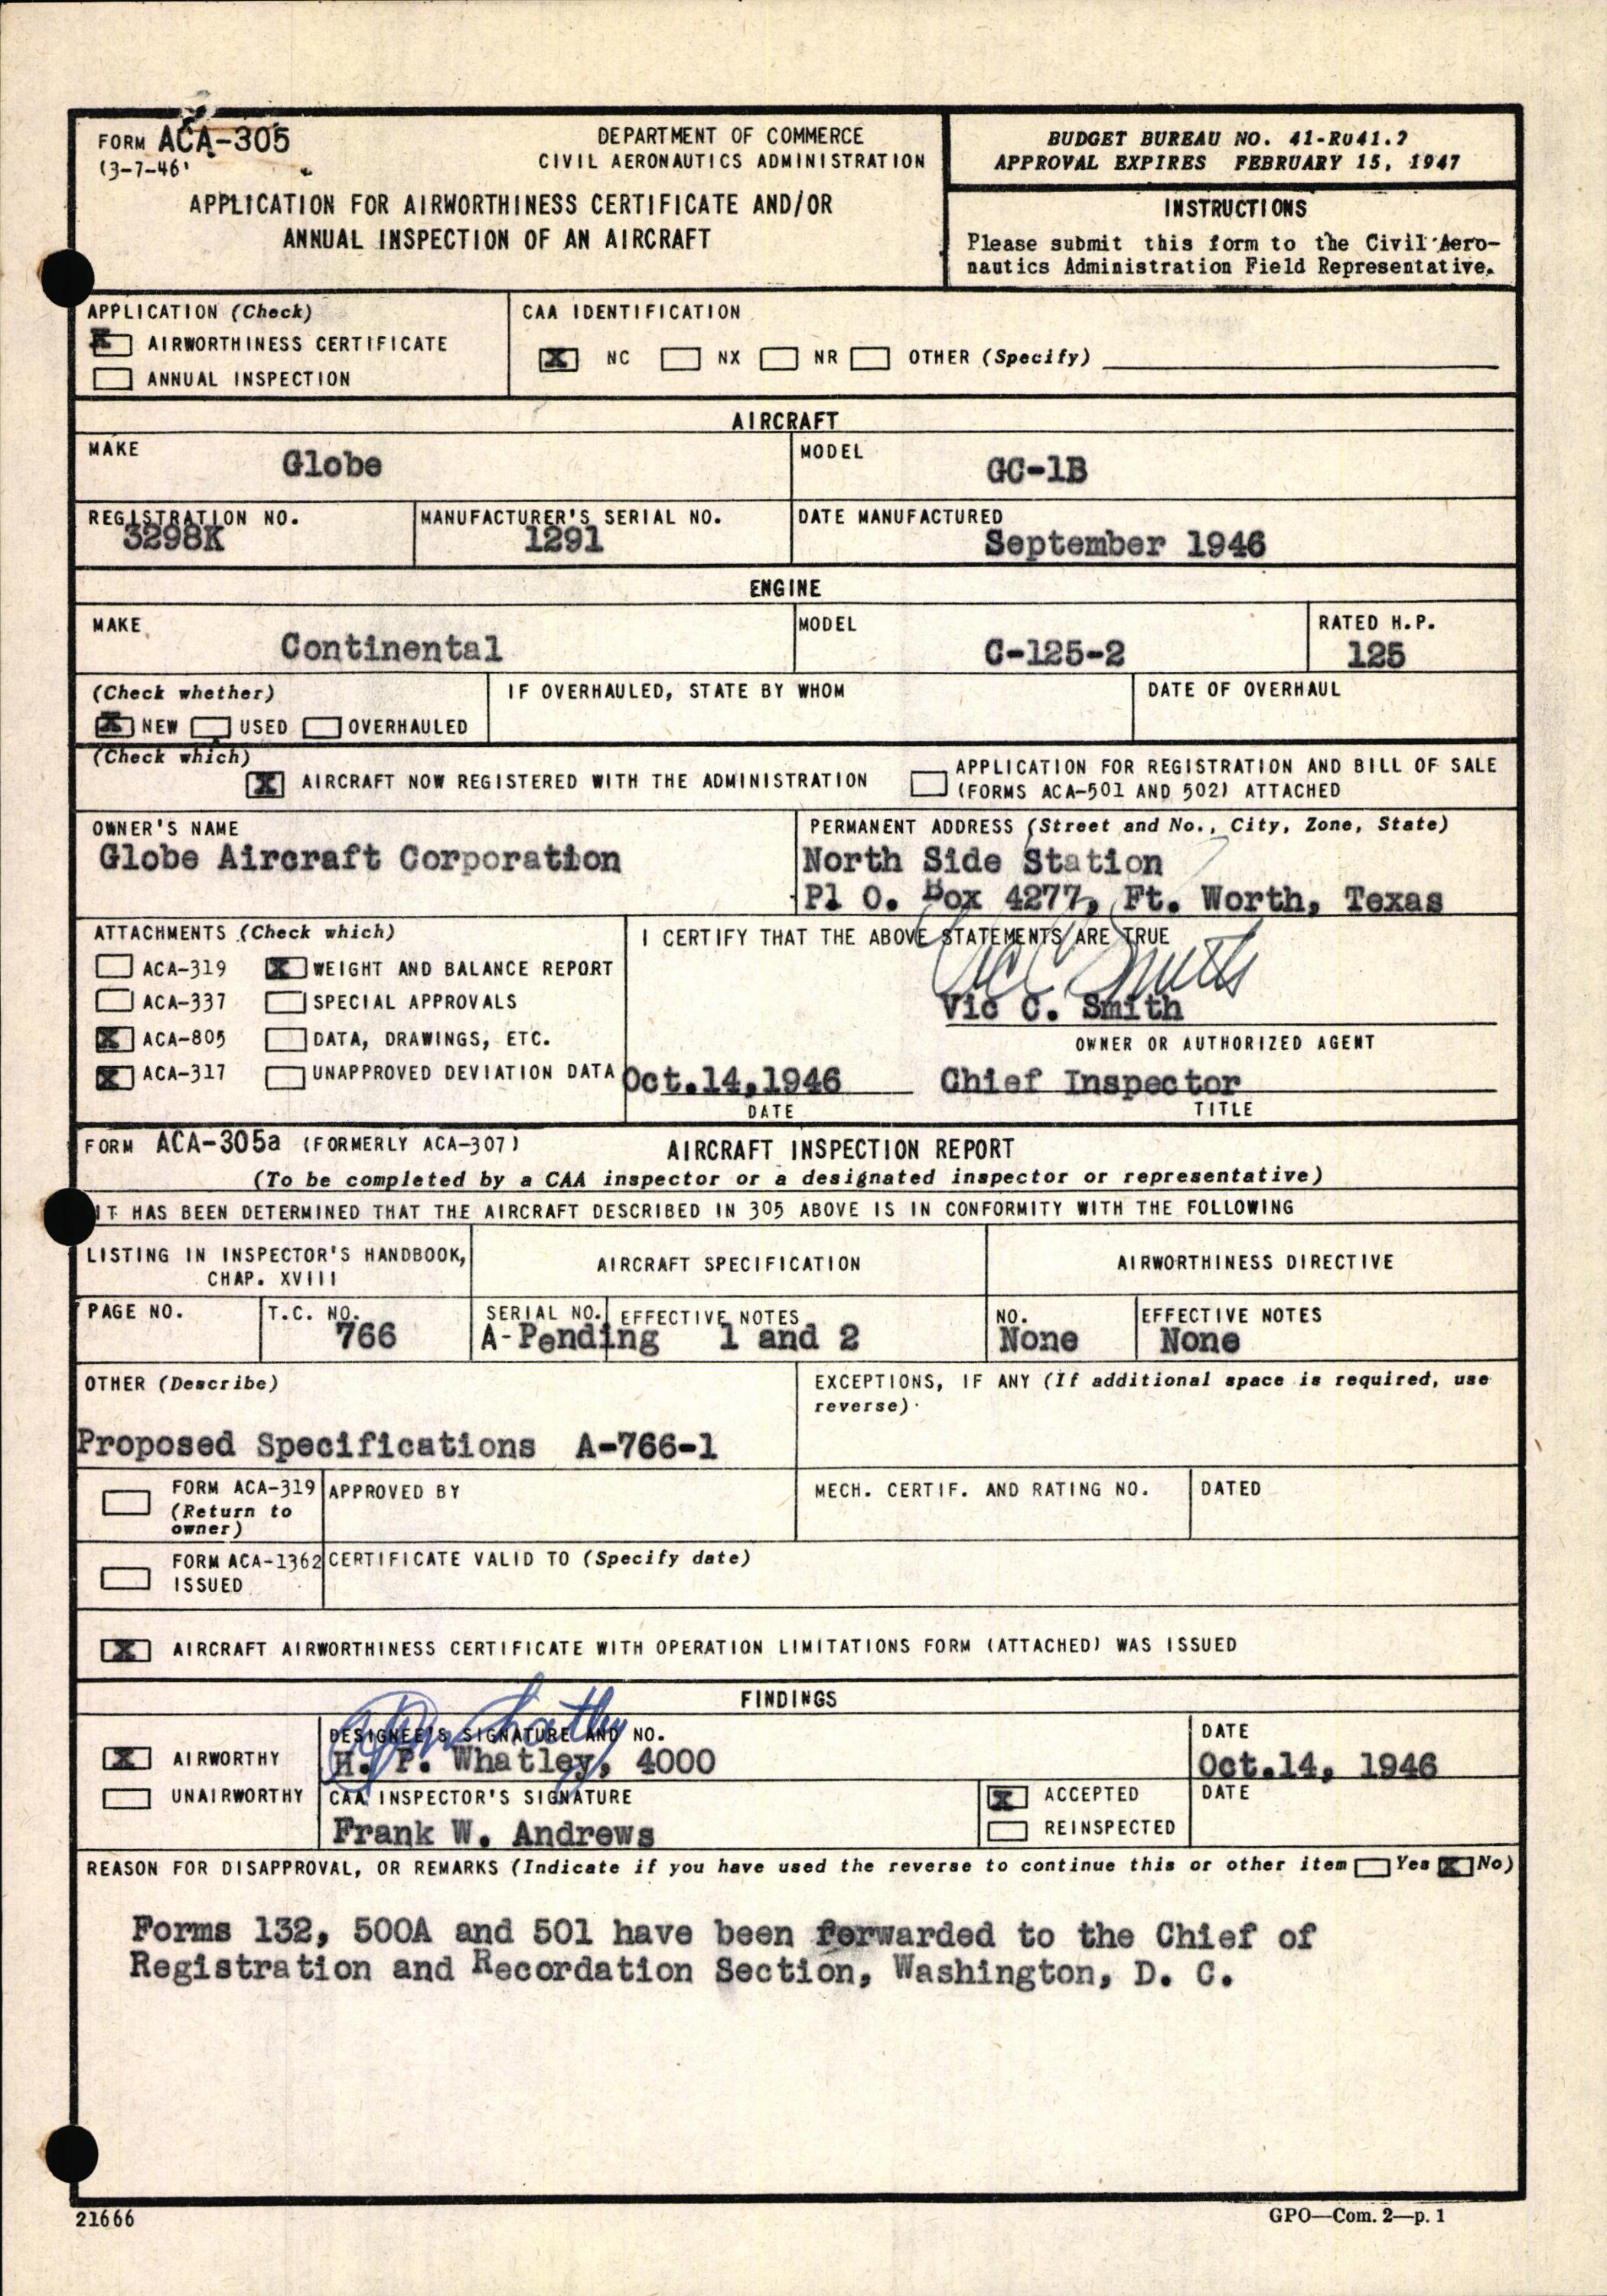 FORM ACA-305
(3-7-46)
DEPARTMENT OF COMMERCE
CIVIL AERONAUTICS ADMINISTRATION
APPLICATION FOR AIRWORTHINESS CERTIFICATE AND/OR
ANNUAL INSPECTION OF AN AIRCRAFT
BUDGET BUREAU NO. 41-R041.2
APPROVAL EXPIRES FEBRUARY 15, 1947
INSTRUCTIONS
Please submit this form to the Civil Aero-
nautics Administration Field Representative.
APPLICATION (Check)
X AIRWORTHINESS CERTIFICATE
ANNUAL INSPECTION
CAA IDENTIFICATION
X NC NX NR OTHER (Specify)
AIRCRAFT
MAKE
Globe
MODEL
GC-1B
REGISTRATION NO.
3298K
MANUFACTURER'S SERIAL NO.
1291
DATE MANUFACTURED
September 1946
ENGINE
MAKE
Continental
MODEL
C-125-2
RATED H.P.
125
(Check whether)
X NEW USED OVERHAULED
IF OVERHAULED, STATE BY WHOM
DATE OF OVERHAUL
(Check which)
X AIRCRAFT NOW REGISTERED WITH THE ADMINISTRATION
APPLICATION FOR REGISTRATION AND BILL OF SALE
(FORMS ACA-501 AND 502) ATTACHED
OWNER'S NAME
Globe Aircraft Corporation
PERMANENT ADDRESS (Street and No., City, Zone, State)
North Side Station
Pl O. Box 4277, Ft. Worth, Texas
ATTACHMENTS (Check which)
ACA-319 X WEIGHT AND BALANCE REPORT
ACA-337 SPECIAL APPROVALS
X ACA-805 DATA, DRAWINGS, ETC.
X ACA-317 UNAPPROVED DEVIATION DATA
I CERTIFY THAT THE ABOVE STATEMENTS ARE TRUE
Vic C Smith
Vic C. Smith
OWNER OR AUTHORIZED AGENT
Oct.14,1946 Chief Inspector
DATE TITLE
FORM ACA-305a (FORMERLY ACA-307) AIRCRAFT INSPECTION REPORT
(To be completed by a CAA inspector or a designated inspector or representative)
IT HAS BEEN DETERMINED THAT THE AIRCRAFT DESCRIBED IN 305 ABOVE IS IN CONFORMITY WITH THE FOLLOWING
LISTING IN INSPECTOR'S HANDBOOK,
CHAP. XVIII
AIRCRAFT SPECIFICATION
AIRWORTHINESS DIRECTIVE
PAGE NO.
T.C. NO.
766
SERIAL NO. EFFECTIVE NOTES
A-Pending 1 and 2
NO.
None
EFFECTIVE NOTES
None
OTHER (Describe)
Proposed Specifications A-766-1
EXCEPTIONS, IF ANY (If additional space is required, use
reverse)
FORM ACA-319
(Return to
owner)
APPROVED BY
MECH. CERTIF. AND RATING NO.
DATED
FORM ACA-1362
ISSUED
CERTIFICATE VALID TO (Specify date)
X AIRCRAFT AIRWORTHINESS CERTIFICATE WITH OPERATION LIMITATIONS FORM (ATTACHED) WAS ISSUED
FINDINGS
X AIRWORTHY
UNAIRWORTHY
DESIGNEE'S SIGNATURE AND NO.
H. P. Whatley, 4000
DATE
Oct.14, 1946
CAA INSPECTOR'S SIGNATURE
Frank W. Andrews
X ACCEPTED
REINSPECTED
DATE
REASON FOR DISAPPROVAL, OR REMARKS (Indicate if you have used the reverse to continue this or other item Yes X No)
Forms 132, 500A and 501 have been forwarded to the Chief of
Registration and Recordation Section, Washington, D. C.
21666
GPO—Com. 2—p. 1